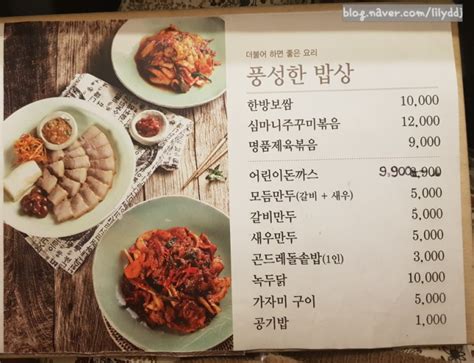 blog.naver.com/lilyddj
더불어 하면 좋은 요리
풍성한 밥상
한방보쌈 10,000
심마니주꾸미볶음 12,000
명품제육볶음 9,000
어린이돈까스 9,900
모듬만두(갈비 + 새우) 5,000
갈비만두 5,000
새우만두 5,000
곤드레돌솥밥(1인) 3,000
녹두닭 10,000
가자미 구이 5,000
공기밥 1,000